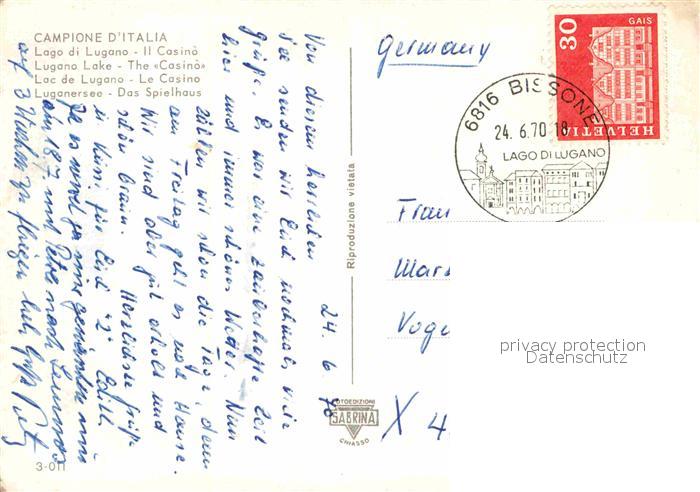 CAMPIONE D'ITALIA
Lago di Lugano - Il Casinò
Lugano Lake - The «Casinò»
Lac de Lugano - Le Casino
Luganersee - Das Spielhaus
24. 6. 70
Von diesem herrlichen
See senden wir Euch nochmals viele
Grüße. Es war eine zauberhafte Zeit
hier und immer schönes Wetter. Nun
zählen wir schon die Tage, denn
am Freitag geht es nach Hause.
Wir sind aber gut erholt und
schön braun. Herzlichste Grüße
u. Küssi für Euch "2" Edith
am 18.7 und Petra nach
auf 3 Wochen zu fliegen
3-011
Riproduzione vietata
FOTOEDIZIONI
SABRINA
CHIASSO
Germany
30
GAIS
HELVETIA
6816 BISSONE
24. 6.70-18
LAGO DI LUGANO
X 4
privacy protection
Datenschutz